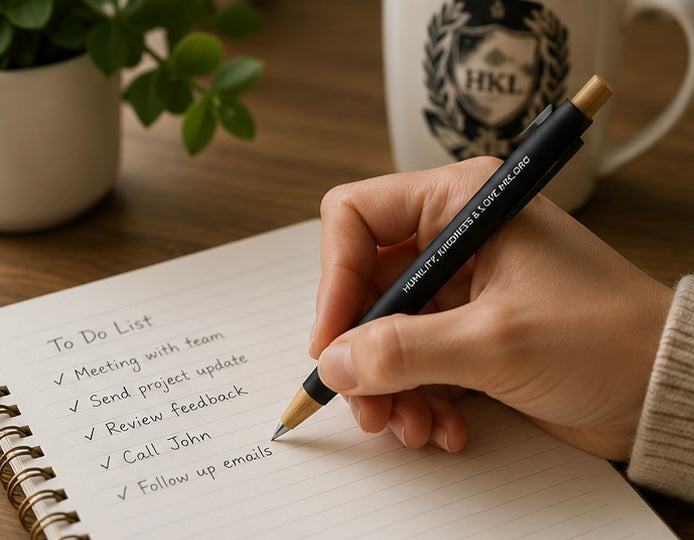 HKL
HUMILITY, KINDNESS & LOVE
To Do List
✓ Meeting with team
✓ Send project update
✓ Review feedback
✓ Call John
✓ Follow up emails